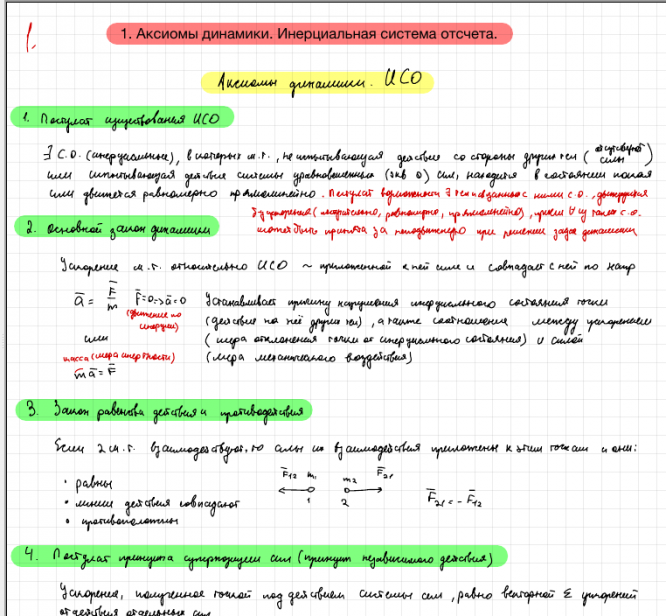 1.
1. Аксиомы динамики. Инерциальная система отсчета.
Аксиомы динамики. ИСО
1. Постулат существования ИСО
∃ С.О. (инерциальные), в которых м.т., не испытывающая действие со стороны других тел (отсутствуют силы)
или испытывающая действия системы уравновешенных (экв 0) сил, находится в состоянии покоя
или движется равномерно прямолинейно. Постулат возможности ∃ тел и связанных с ними С.О., движущихся
без ускорения (поступательно, равномерно, прямолинейно), причем ∀ из таких С.О.
2. Основной закон динамики
может быть принята за неподвижную при решении задач динамики
Ускорение м.т. относительно ИСО ~ приложенной к ней силе и совпадает с ней по напр
a̅ = F̅/m F̅=0 => a̅=0 Устанавливает причину нарушения инерциального состояния точки
(движение по инерции) (действие на неё других тел), а также соотношение между ускорением
или (мера отклонения точки от инерциального состояния) и силой
масса (мера инертности) (мера механического воздействия)
ma̅ = F̅
3. Закон равенства действия и противодействия
Если 2 м.т. взаимодействуют, то силы их взаимодействия приложены к этим точкам и они:
• равны F̅₁₂ m₁ m₂ F̅₂₁
• линии действия совпадают 1 2 F̅₂₁ = - F̅₁₂
• противоположны
4. Постулат принципа суперпозиции сил (принцип независимого действия)
Ускорение, полученное точкой под действием системы сил, равно векторной Σ ускорений
от действия отдельных сил